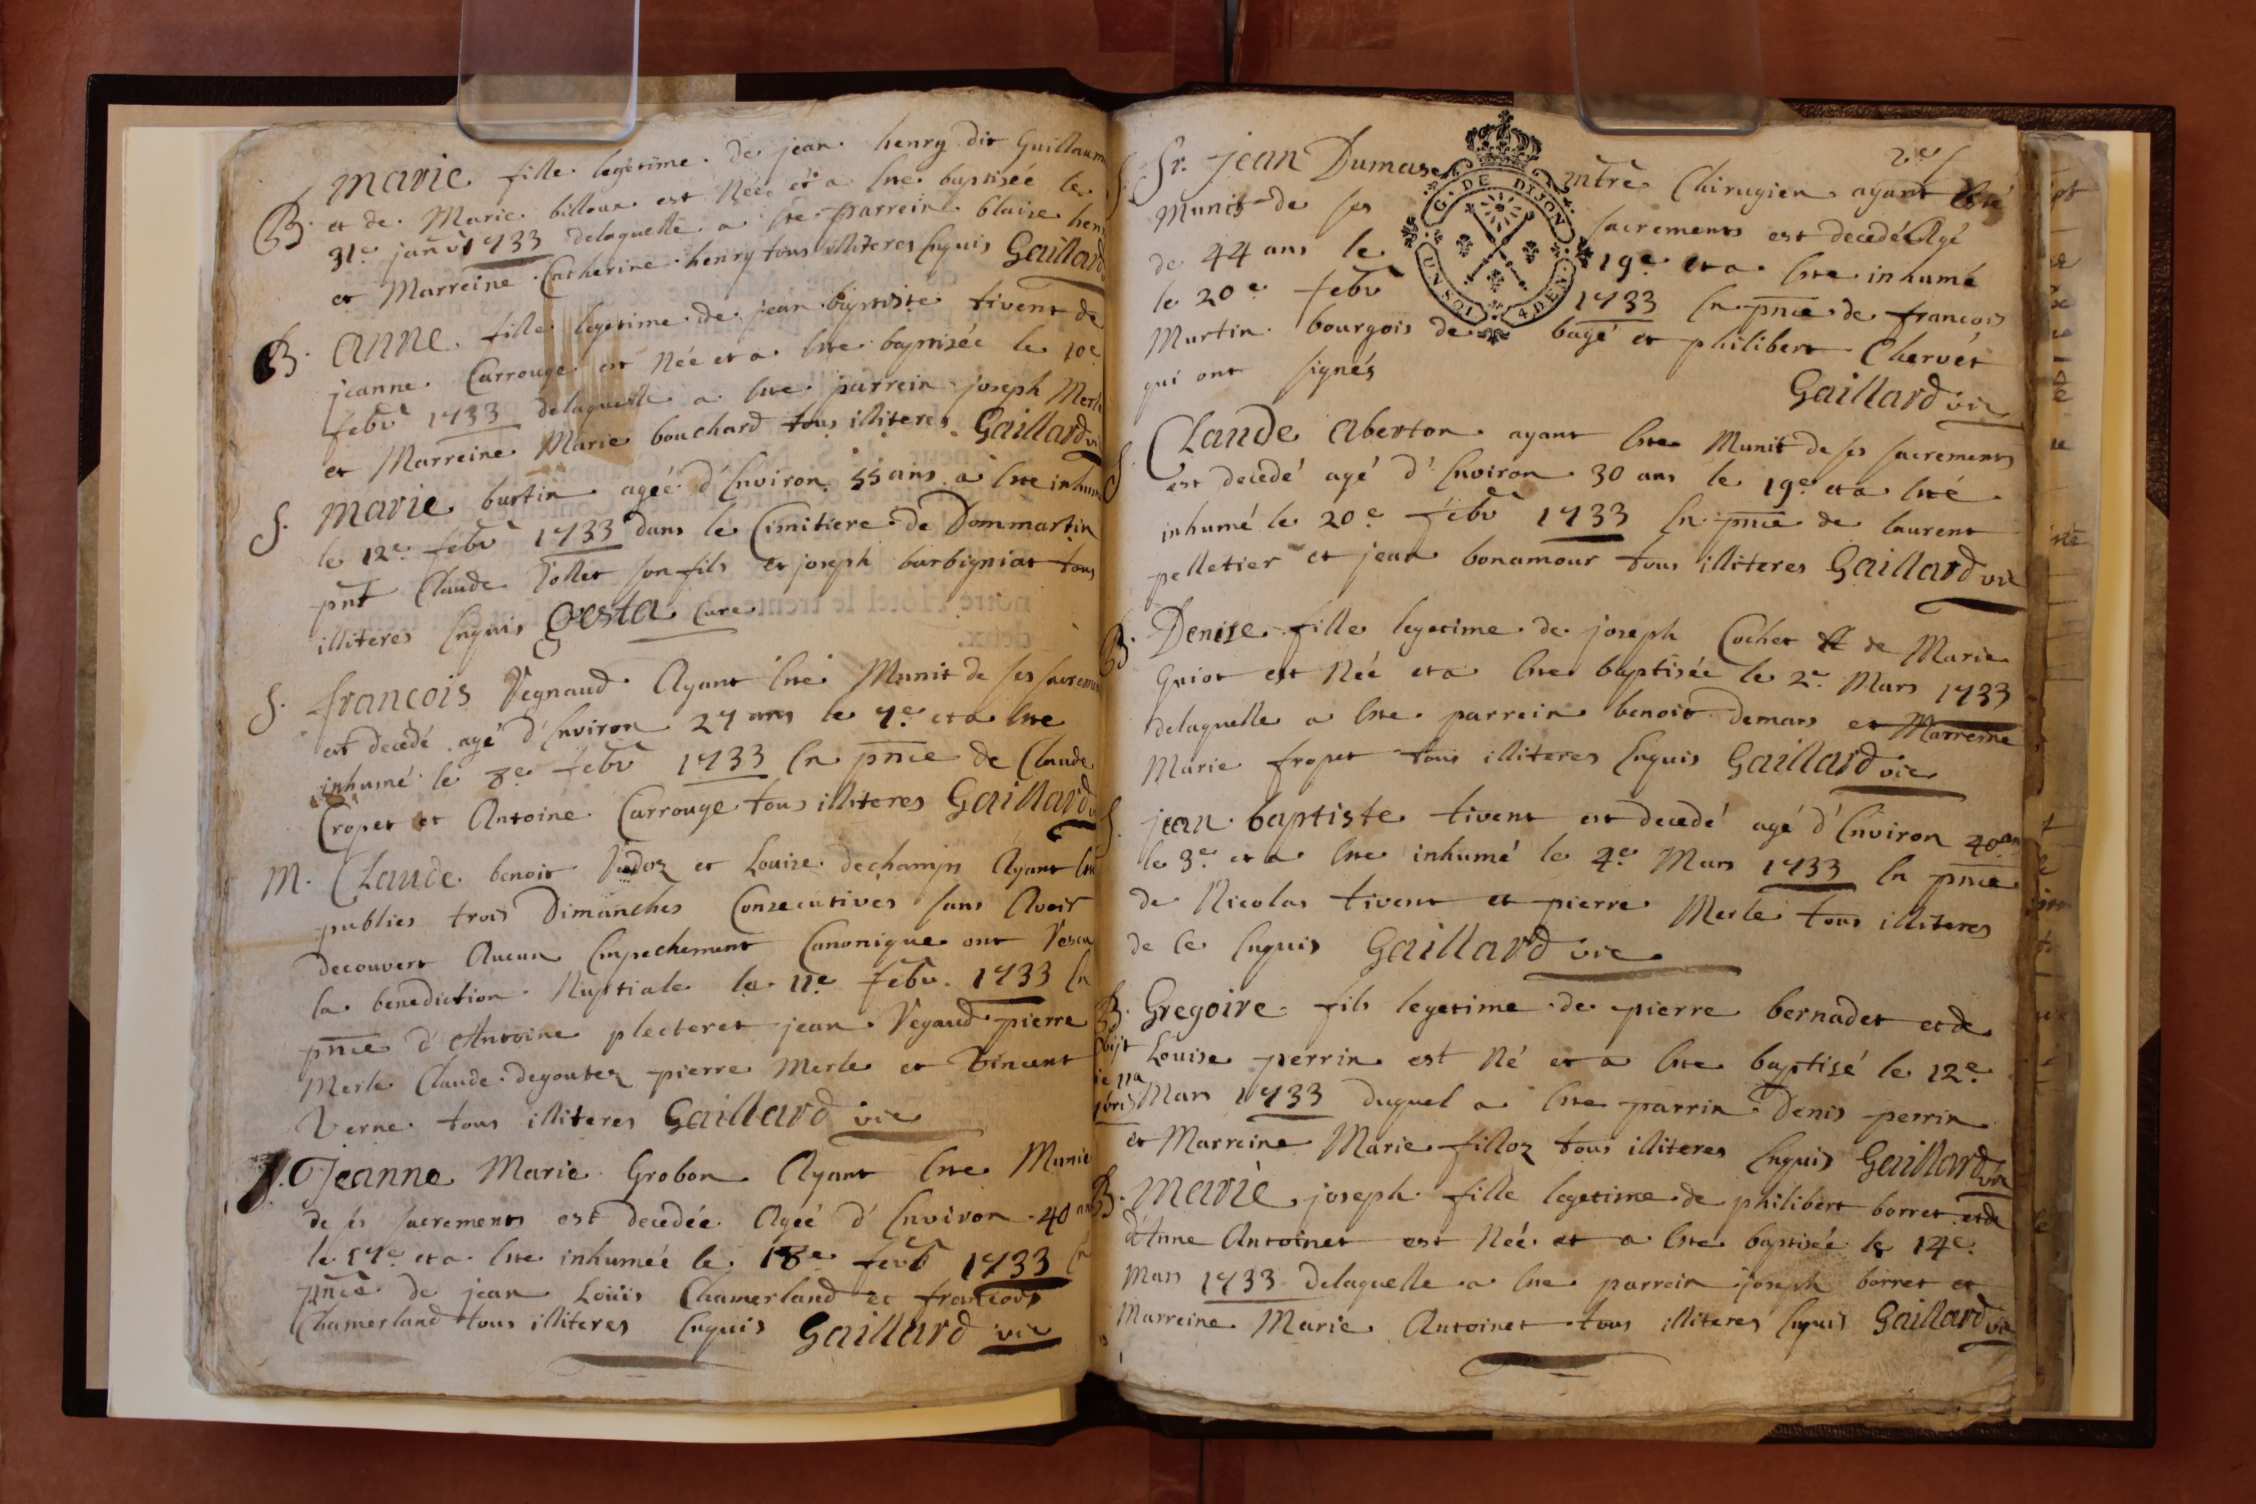 marie fille legetime de jean henry dit Guillaume
B. et de Marie billoux est Née et a este baptisée le
31e janv 1733 delaquelle a este parreine blaise henry
et Marreine Catherine henry tous illiteres enquis Gaillard
B. anne fille legetime de jean baptiste tivent de
jeanne Carrouge est Née et a este baptisée le 10e
febv 1733 delaquelle a este parrein joseph Merle
et Marreine Marie bouchard tous illiteres Gaillard vic
S. marie burtin agée d'environ 55 ans a este inhum
le 12e febv 1733 dans le Cimitiere de Dommartin
pnt Claude Tollet son fils et joseph barbigniat tous
illiteres enquis Cure
S. francois Regnaud Ayant esté Munit de ses sacremens
est decedé agé d'environ 27 ans le 7e et a este
inhumé le 8e febv 1733 en pnce de Claude
Cropet et Antoine Carrouge tous illiteres Gaillard
M. Claude benoit et Louise dechamps Ayant esté
publies trois Dimanches Consecutives sans Avoir
decouvert Aucun Empechement Canonique ont Resceu
la benediction Nuptiale le 11e febv. 1733 en
pnce d'Antoine plecteret jean Regaud pierre
Merle Claude degoutez pierre Merle et Vincent
Verne tous illiteres Gaillard vic
S. Jeanne Marie Grobon Ayant este Munie
de ses sacrements est decedée Agée d'environ 40 ans
le 17e et a este inhumée le 18e fevb 1733 en
pnce de jean Loüis Chamerland et francois
Chamerland tous illiteres enquis Gaillard vic
2e
S. Sr. jean Dumas mtre Chirugien ayant esté
Munis de ses sacrements est decedé Agé
de 44 ans le 19e et a este inhumé
le 20e febv 1733 en pnce de francois
Martin bourgois de bagé et philibert Chervét
qui ont signés
Gaillard vic
G. DE DIJON
4 DEN.
UN SOL
S. Claude Aberton ayant este Munit de ses sacrements
est decedé agé d'environ 30 ans le 19e et a esté
inhumé le 20e febv 1733 en pnce de laurent
pelletier et jean bonamour tous illiteres Gaillard vic
B. Denise fille legetime de joseph Cochet et de Marie
Guiot est Née et a este baptisée le 2e Mars 1733
delaquelle a este parrein benoit demars et Marreine
Marie fropet tous illiteres enquis Gaillard vic
S. jean baptiste tivent est decedé agé d'environ 40 ans
le 3e et a este inhumé le 4e Mars 1733 en pnce
de Nicolas tivent et pierre Merle tous illiteres
de ce enquis Gaillard vic
B. Gregoire fils legetime de pierre bernadet et de
Louise perrin est Né et a este baptisé le 12e
Mars 1733 duquel a este parrin Denis perrin
et Marreine Marie filloz tous illiteres enquis Gaillard vic
B. Marie joseph fille legetime de philibert borret et de
d'Anne Antoinet est Née et a este baptisée le 14e
Mars 1733 delaquelle a este parrein joseph borret et
Marreine Marie Antoinet tous illiteres enquis Gaillard vic